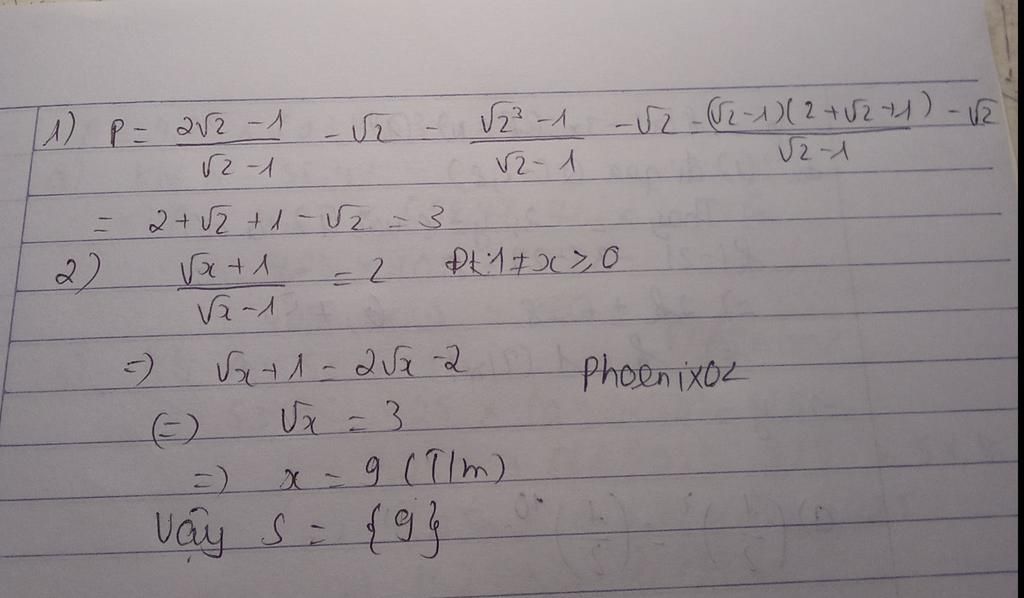 1) P = \frac{2√2 - 1}{√2 - 1} - √2 = \frac{√2³ - 1}{√2 - 1} - √2 = \frac{(√2 - 1)(2 + √2 + 1)}{√2 - 1} - √2
= 2 + √2 + 1 - √2 = 3
2) \frac{√x + 1}{√x - 1} = 2 Đk: 1 ≠ x ≥ 0
=> √x + 1 = 2√x - 2
(=) √x = 3
=> x = 9 (T/m)
Vậy S = {9}